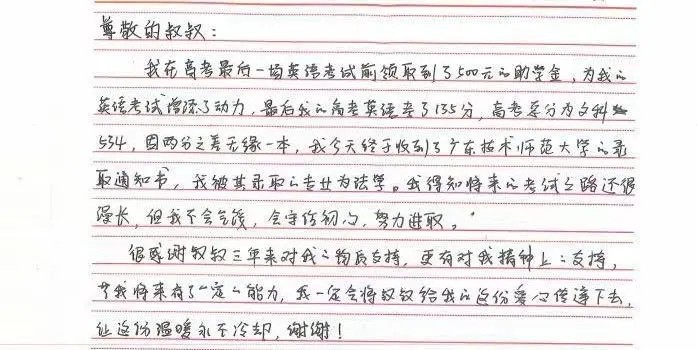 尊敬的叔叔：
我在高考最后一场英语考试前领取到了500元的助学金，为我的
英语考试增添了动力，最后我的高考英语考了135分，高考总分为文科
534，因两分之差无缘一本，我今天终于收到了广东技术师范大学的录
取通知书，我被其录取的专业为法学。我得知将来的考试之路还很
漫长，但我不会气馁，会守住初心，努力进取。
很感谢叔叔三年来对我的物质支持，更有对我精神上的支持，
我将来有了一定的能力，我一定会将叔叔给我的这份爱心传递下去，
让这份温暖永不冷却，谢谢！